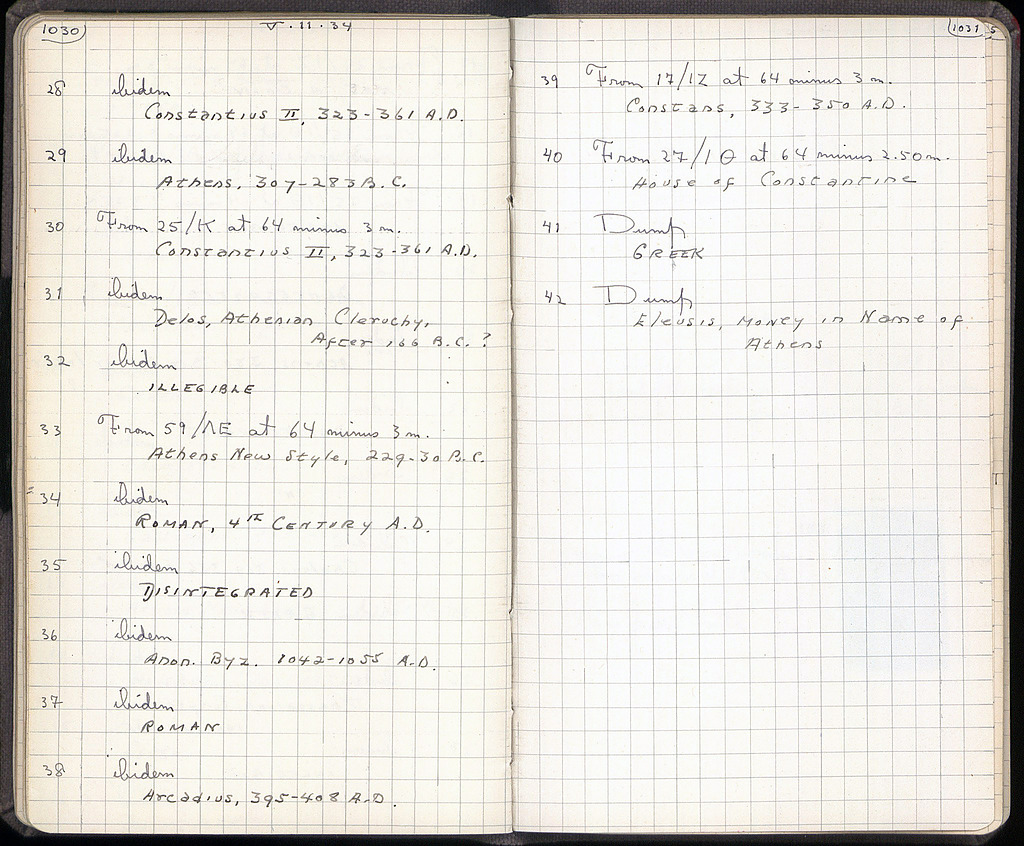 1030
V · 11 · 34
28 ibidem
Constantius II, 323-361 A.D.
29 ibidem
Athens, 307-283 B.C.
30 From 25/K at 64 minus 3 m.
Constantius II, 323-361 A.D.
31 ibidem
Delos, Athenian Cleruchy,
After 166 B.C. ?
32 ibidem
ILLEGIBLE
33 From 59/ΛE at 64 minus 3 m.
Athens New Style, 229-30 B.C.
34 ibidem
ROMAN, 4TH CENTURY A.D.
35 ibidem
DISINTEGRATED
36 ibidem
Anon. Byz. 1042-1055 A.D.
37 ibidem
ROMAN
38 ibidem
Arcadius, 395-408 A.D.
1031
39 From 17/IZ at 64 minus 3 m.
Constans, 333-350 A.D.
40 From 27/IΘ at 64 minus 2.50 m.
House of Constantine
41 Dump
GREEK
42 Dump
Eleusis, Money in Name of
Athens